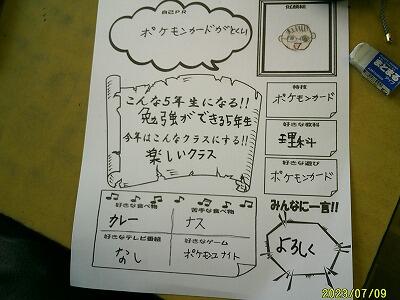 自己PR
ポケモンカードがとくい
似顔絵
こんな5年生になる!!
勉強ができる5年生
今年はこんなクラスにする!!
楽しいクラス
特技
ポケモンカード
好きな教科
理科
好きな遊び
ポケモンカード
好きな食べ物
カレー
苦手な食べ物
ナス
好きなテレビ番組
なし
好きなゲーム
ポケモンユナイト
みんなに一言!!
よろしく
2023/07/09